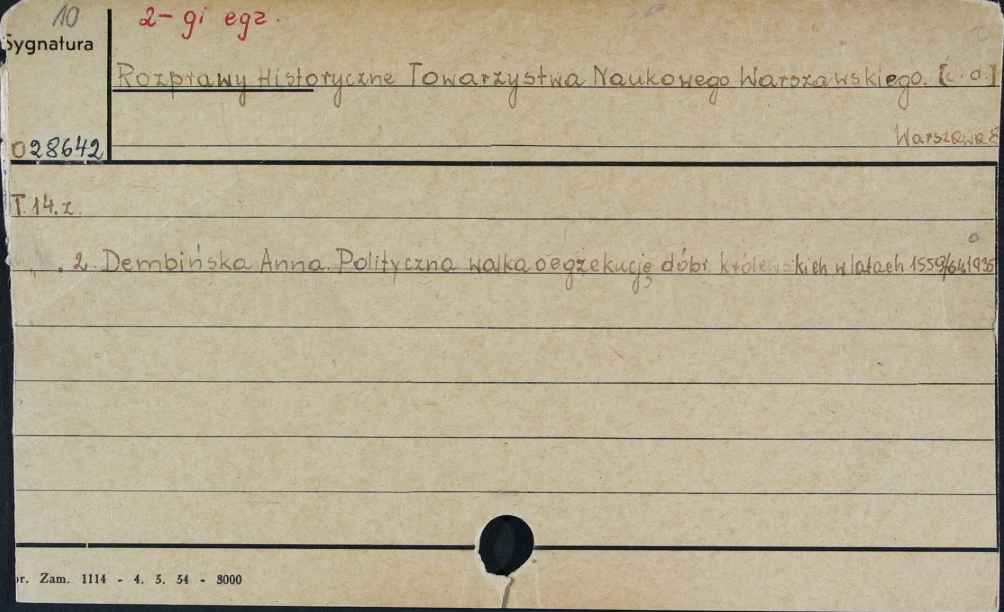 10
2-gi egz.
Sygnatura
Rozprawy Historyczne Towarzystwa Naukowego Warszawskiego. [c.d.]
028642
Warszawa
T. 14. z.
2. Dembińska Anna. Polityczna walka o egzekucję dóbr królewskich w latach 1559/64. 1935
r. Zam. 1114 - 4. 5. 54 - 3000